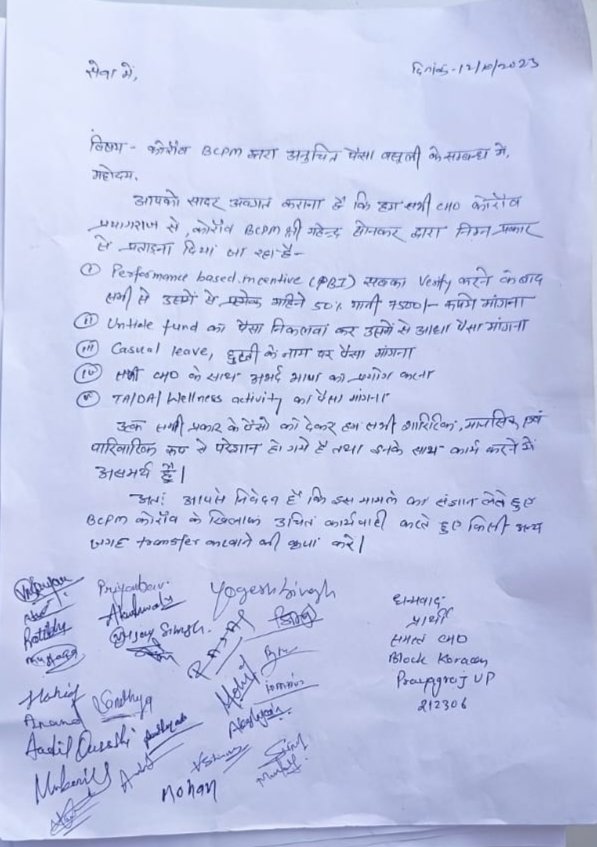 सेवा में,
दिनांक-12/10/2023
विषय - कोरॉव BCPM द्वारा अनुचित पैसा वसूली के सम्बन्ध में,
महोदय,
आपको सादर अवगत कराना है कि हम सभी CHO कोरॉव
प्रयागराज से, कोरॉव BCPM श्री महेन्द्र होनकर द्वारा निम्न प्रकार
से प्रताड़ना दिया जा रहा है-
(i) Performance based incentive (PBI) सबका Verify करने के बाद
सभी से उसमें से प्रत्येक महिने 50% यानी 7500/- रूपये मांगना
(ii) Untide fund का पैसा निकलवा कर उसमें से आधा पैसा मांगना
(iii) Casual leave, छुट्टी के नाम पर पैसा मांगना
(iv) सभी CHO के साथ अभद्र भाषा का प्रयोग करना
(v) TA/DA/ Wellness activity का पैसा मांगना
उक्त सभी प्रकार के पैसो को देकर हम सभी शारिरिक, मानसिक एवं
पारिवारिक रूप से परेशान हो गये है तथा इनके साथ कार्य करने में
असमर्थ है।
अतः आपसे निवेदन है कि इस मामले का संज्ञान लेते हुए
BCPM कोरॉव के खिलाफ उचित कार्यवाही करते हुए किसी अन्य
जगह transfer करवाने की कृपा करे।
धन्यवाद
प्रार्थी
समस्त CHO
Block Koraon
Prayagraj UP
212306
Yogesh Singh
Sandhya
Anand
Aadil Qureshi
Mohan